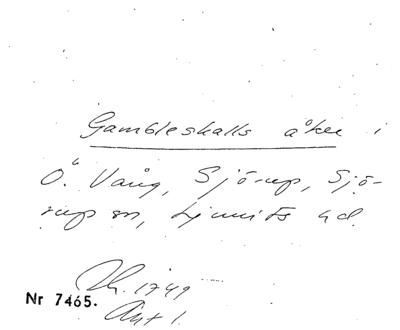 Gambleskalls åker i
Ö. Vång, Sjörup, Sjö-
rup sn, Ljunits hd.
Lh. 1749
Akt 1.
Nr 7465.